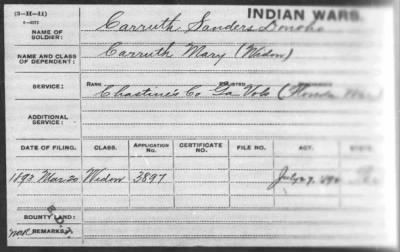 (3-H-11)
INDIAN WARS.
NAME OF SOLDIER:
Carruth Sanders Donoho
NAME AND CLASS OF DEPENDENT:
Carruth Mary (Widow)
SERVICE:
RANK
Chastine's Co Ga Vols (Florida War)
ADDITIONAL SERVICE:
DATE OF FILING. CLASS. APPLICATION NO. CERTIFICATE NO. FILE NO. ACT.
1893 Mar 20 Widow 3897 July 27, 189
BOUNTY LAND:
REMARKS: